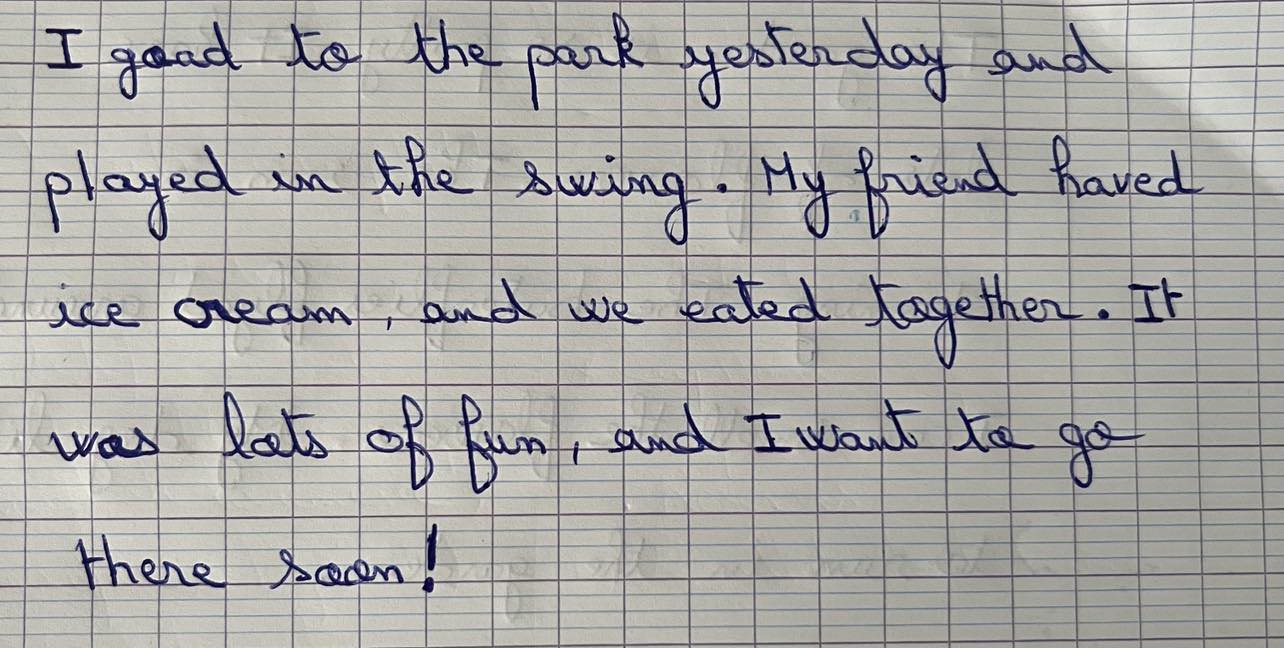 I goad to the park yesterday and
played in the swing. My friend haved
ice cream, and we eated together. It
was lots of fun, and I want to go
there soon!